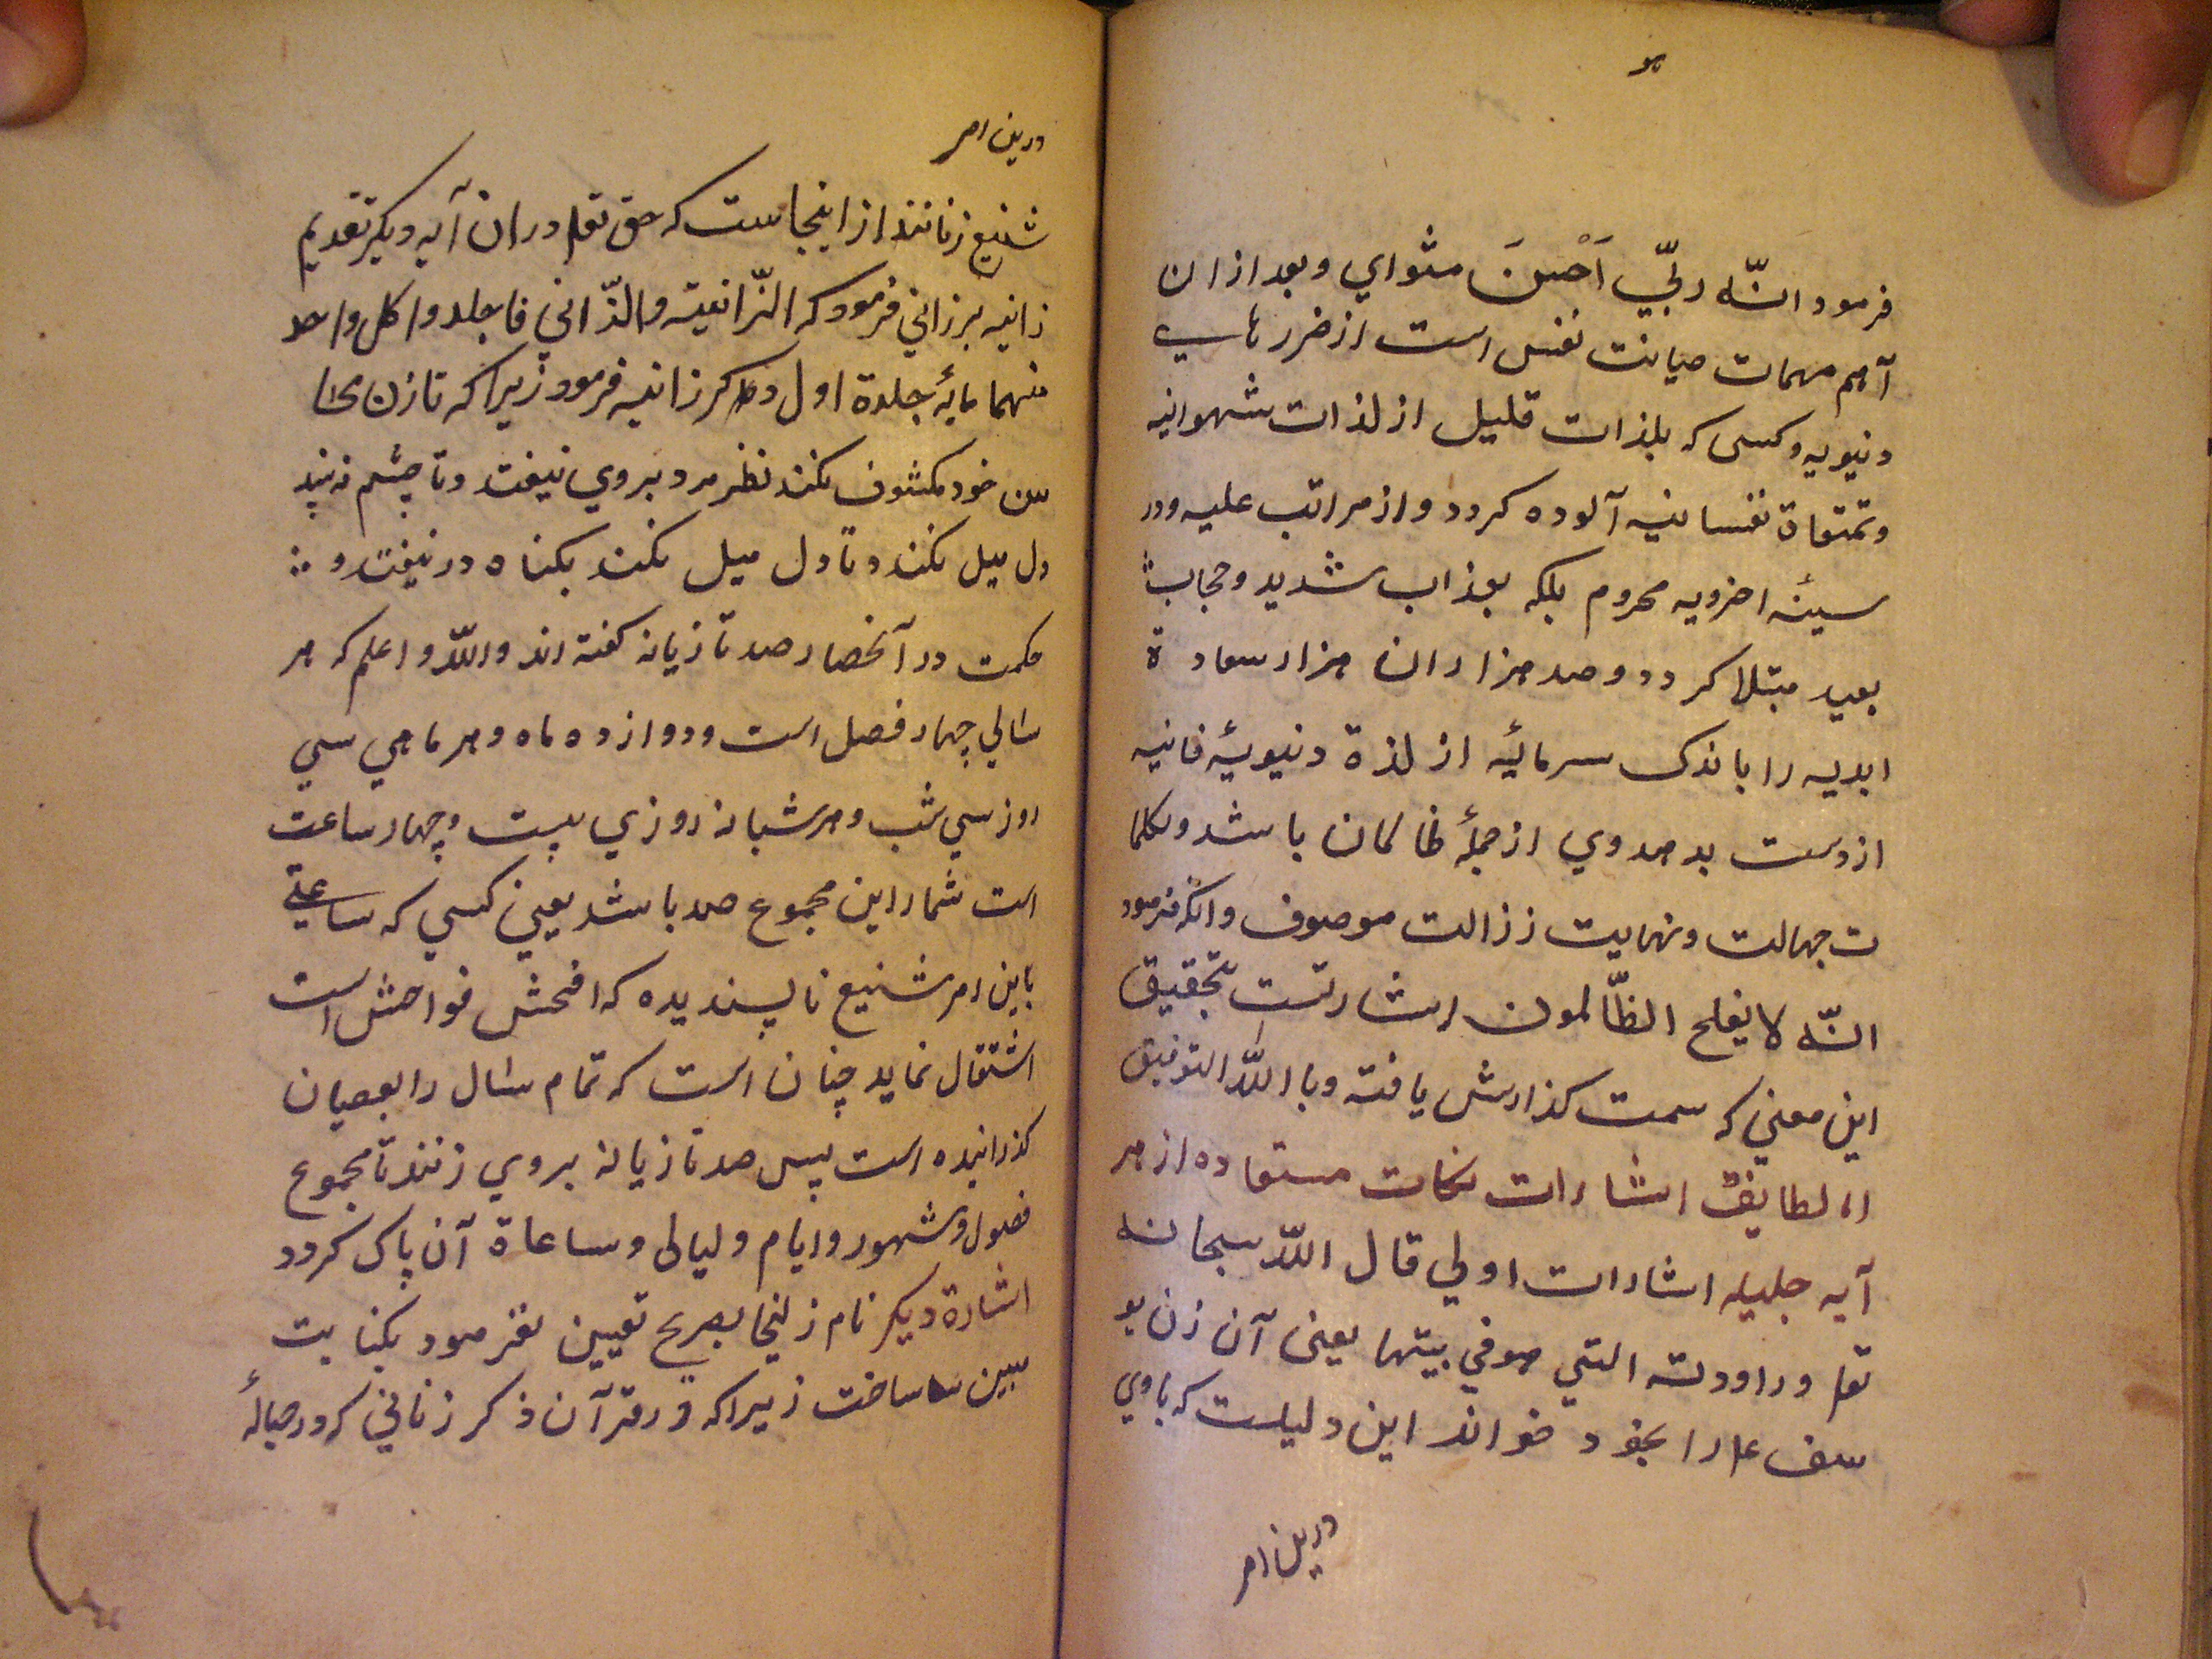 هو
فرمود انّه ربّي اَحْسنَ مثواي وبعد ازان
آهم مهمات صيانت نفس است از ضررهاے
دنيويه وكسى كه بلذات قليل از لذات شهوانيه
وتمتعاة نفسانيه آلوده كردد واز مراتب عليه ودر
سيئه اخرويه محروم بلكه بعذاب شديد وحجاب
بعيد مبتلا كردد وصد هزاران هزار سعادة
ابديه را باندک سرمائيه از لذة دنيويۀ فانيه
از دست بدهد وي از جملۀ ظالمان باشد وبكلما
ت جهالت ونهايت رذالت موصوف وانكه فرمود
انّه لا يفلح الظّالمون اشارتست بتحقيق
اين معني كه سمت كذارش يافته وباالله التوفيق
لطايف اشارات نكات مستفاده از هر
آيه جليله اشارات اولي قال الله سبحانه
تعا وراودته التي هو في بيتها يعنى آن زن يو
سف ع را بخود خواند اين دليلست كه باوي
درين امر
درين امر
شنيع زنانند از اينجاست كه حق تعا دران آيه ديكر تقديم
زانيه بر زاني فرمود كه الزّانية والزّاني فاجلدوا كل واحد
منهما مايۀ جلدة اول ذكر زانيه فرمود زيرا كه تا زن
تن خود مكشوف نكند نظر مرد بروي نيفتد وتا چشم نه بيند
دل ميل نكند وتا دل ميل نكند بكناه در نيفتد و
حكمت در آنحصار صد تازيانه كفته اند والله اعلم كه هر
سالي چهار فصل است ودوازده ماه وهر ماهي سي
روز سي شب وهر شبانه روزي بيست وچهار ساعت
است شمار اين مجموع صد باشد يعني كسي كه ساعتے
باين امر شنيع ناپسنديده كه افحش فواحش است
اشتغال نمايد چنان است كه تمام سال را بعصيان
كذرانيده است پس صد تازيانه بروي زنند تا مجموع
فصول وشهور وايام وليالى وساعاة آن پاک كردد
اشارة ديكر نام زليخا بصريح تعيين نفرمود بكنايت
مبين ساخت زيرا كه در قرآن ذكر زناني كه در حبالۀ